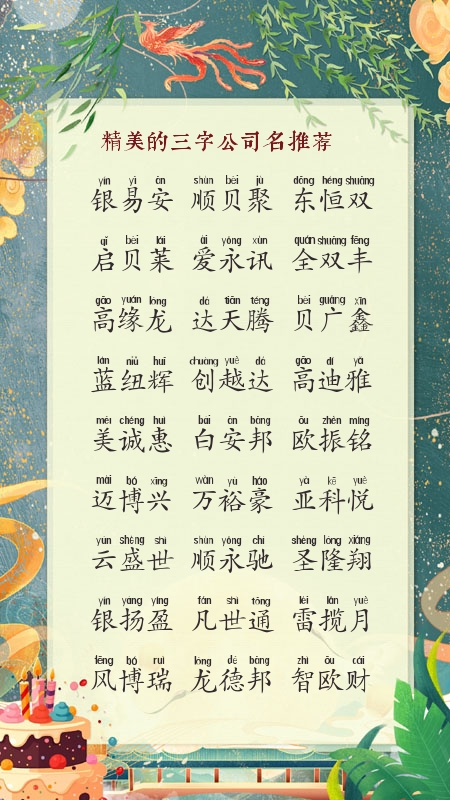 精美的三字公司名推荐
yín yì ān shùn bèi jù dōng héng shuāng
银易安 顺贝聚 东恒双
qǐ bèi lái ài yǒng xùn quán shuāng fēng
启贝莱 爱永讯 全双丰
gāo yuán lóng dá tiān téng bèi guǎng xīn
高缘龙 达天腾 贝广鑫
lán niǔ huī chuàng yuè dá gāo dí yǎ
蓝纽辉 创越达 高迪雅
měi chéng huì bái ān bāng ōu zhèn míng
美诚惠 白安邦 欧振铭
mài bó xīng wàn yù háo yà kē yuè
迈博兴 万裕豪 亚科悦
yún shèng shì shùn yǒng chí shèng lóng xiáng
云盛世 顺永驰 圣隆翔
yín yáng yíng fán shì tōng léi lǎn yuè
银扬盈 凡世通 雷揽月
fēng bó ruì lóng dé bāng zhì ōu cái
风博瑞 龙德邦 智欧财